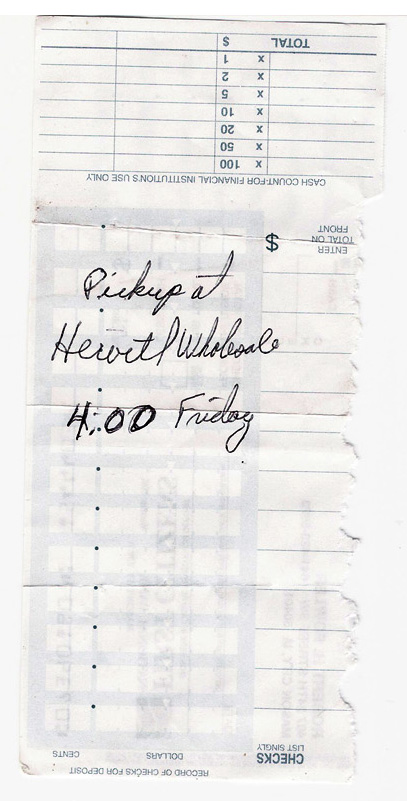 TOTAL $
x 1
x 2
x 5
x 10
x 20
x 50
x 100
CASH COUNT-FOR FINANCIAL INSTITUTION'S USE ONLY
ENTER
TOTAL ON
FRONT
$
Pickup at
Wholesale
4:00 Friday
CHECKS
LIST SINGLY
DOLLARS
CENTS
RECORD OF CHECKS FOR DEPOSIT